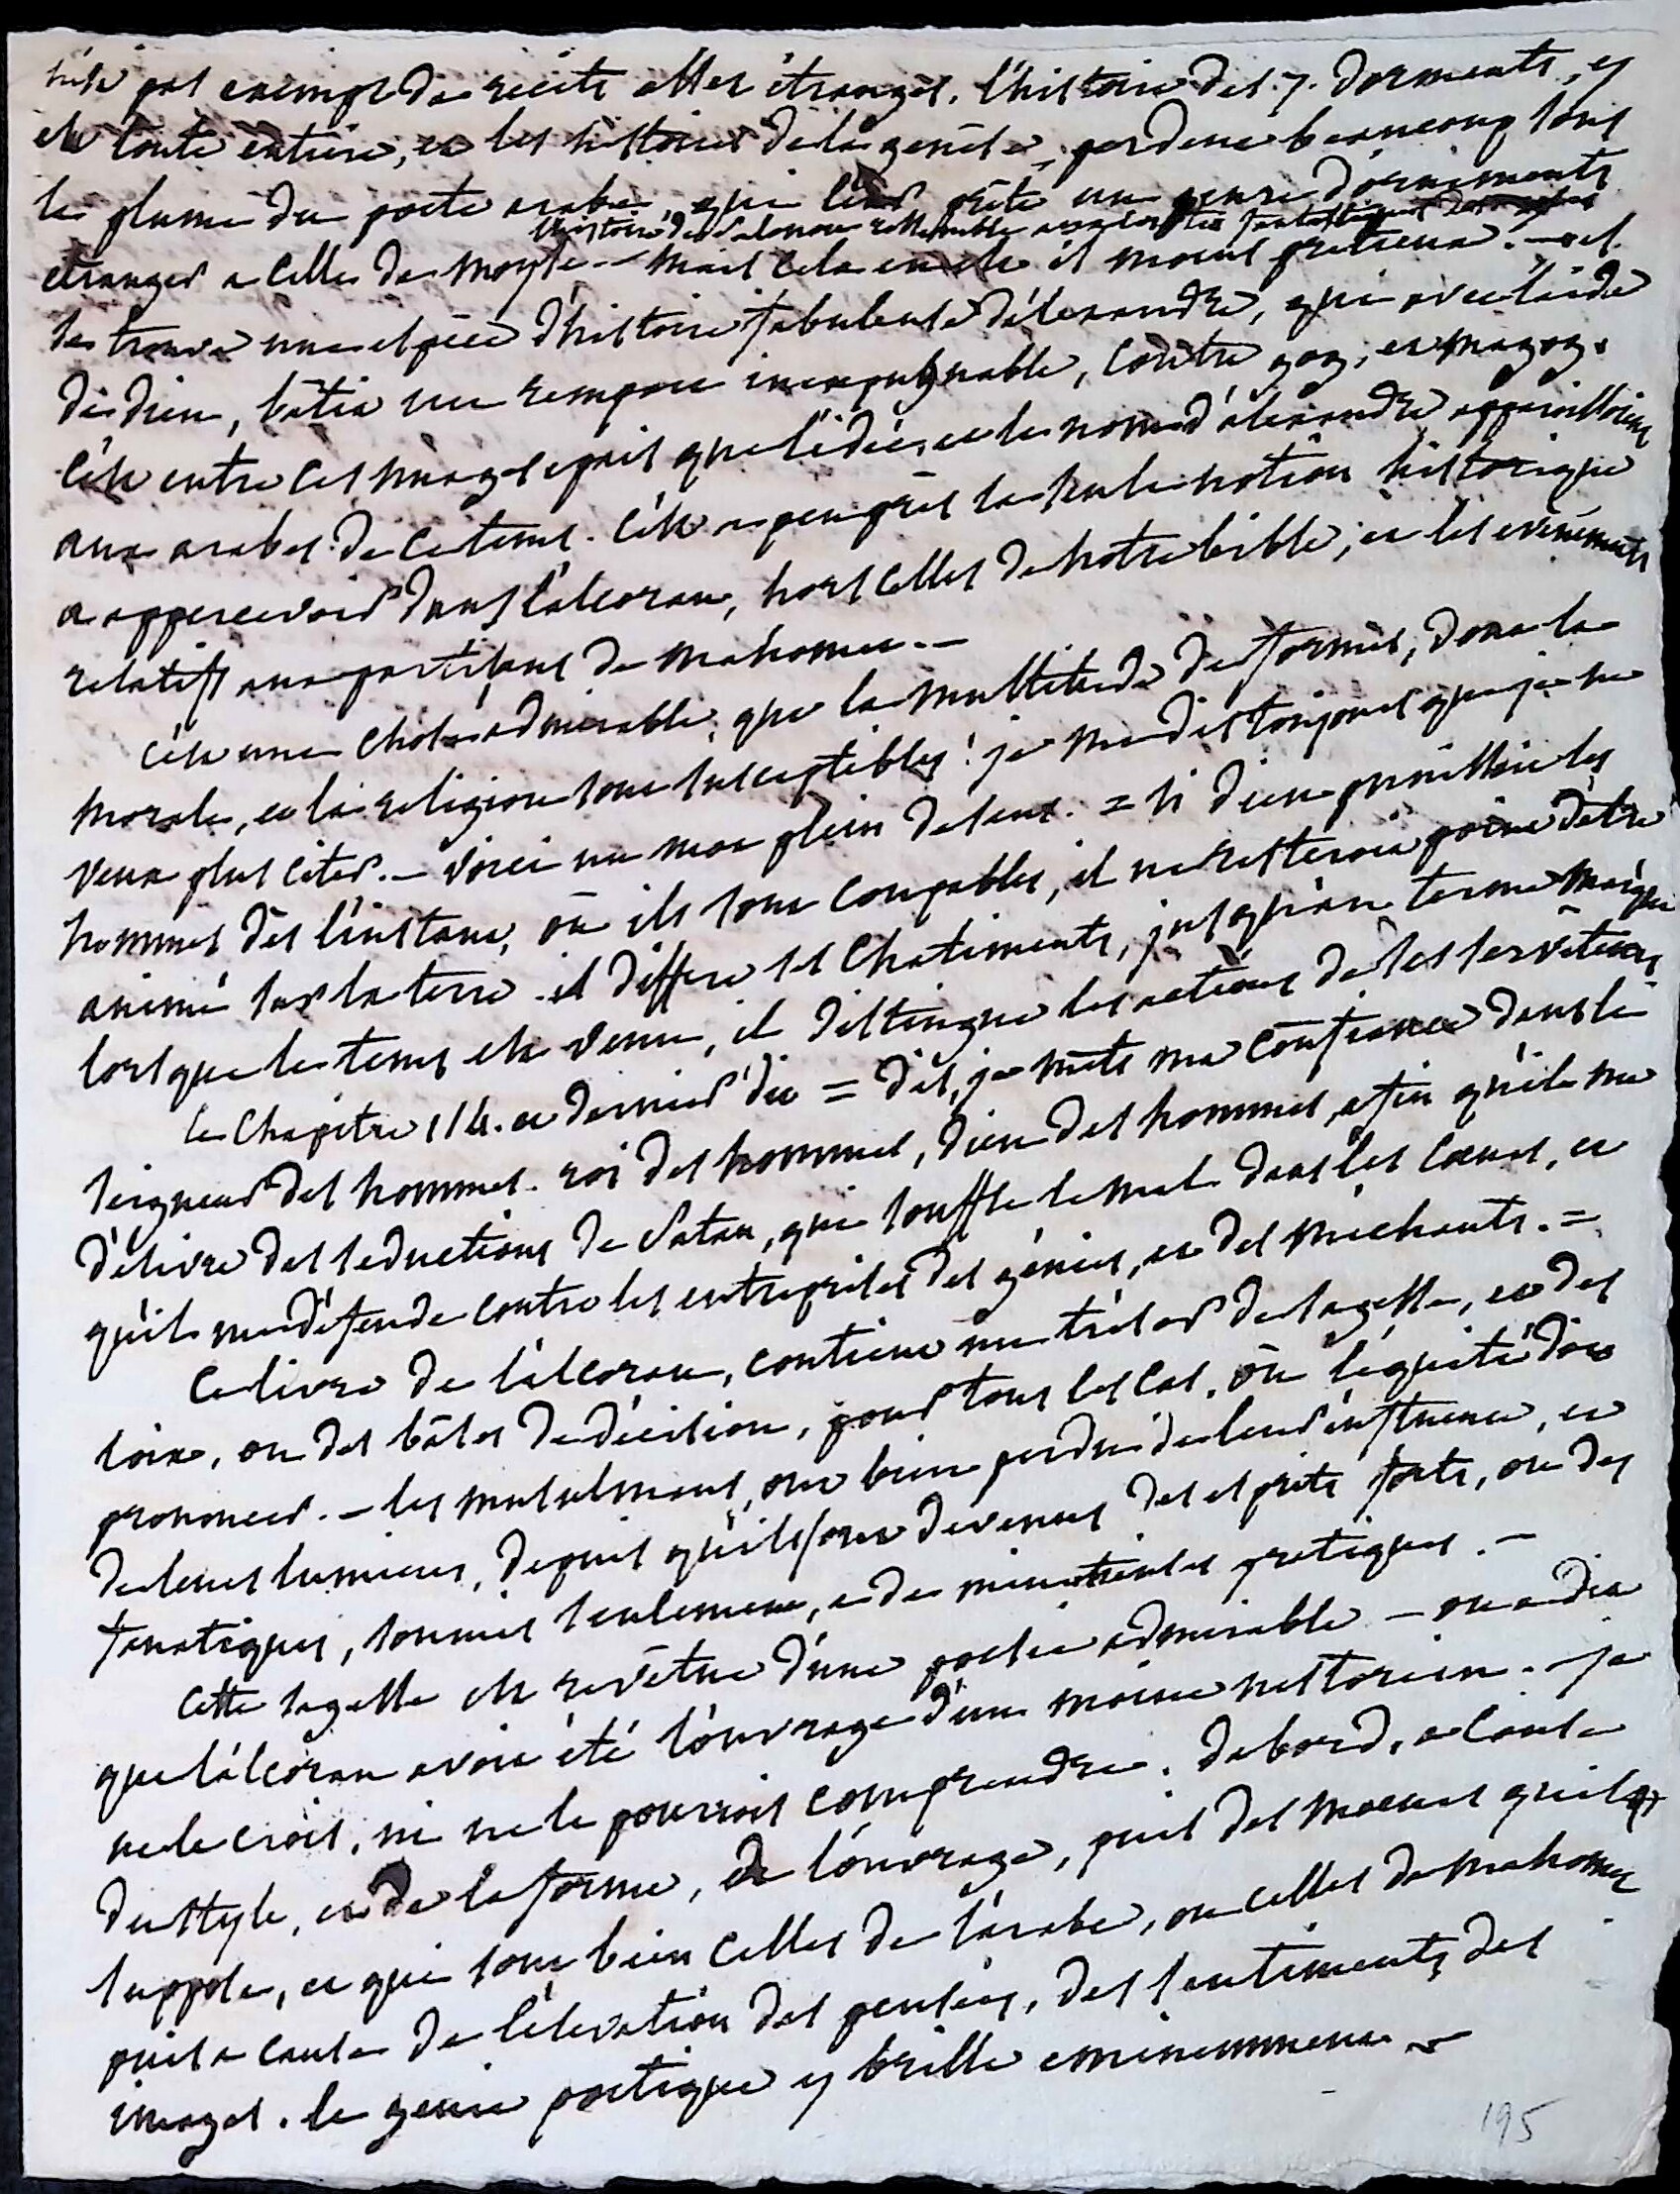 pas exempt de recits assez étranges. l'histoire des 7. dormants, y
est toute entiere, et les histoires de la genese, perdent beaucoup sous
la plume du poete arabe, qui leur prête un genre d'ornements
l'histoire de Salomon ressemble a
étranger a celles de moyse. – mais cela en est il moins precieux. –
se trouve une espèce d'histoire fabuleuse d'alexandre, qui avec l'aide
de dieu, bâtit un rempart inexpugnable, contre gog, et magog.
c'est entre ces nuages epais que l'idée, et le nom d'alexandre apparoissoient
aux arabes de ce tems. c'est a peu près la seule notion historique
a appercevoir dans l'alcoran, hors celles de notre bible, et les evenements
relatifs aux partisans de mahomet. –
c'est une chose admirable, que la multitude de formes, dont la
morale, et la religion sont susceptibles! je me dis toujours que je ne
veux plus citer. – voici un mot plein de sens. = si dieu punissoit les
hommes dès l'instant, où ils sont coupables, il ne resteroit point d'être
animé sur la terre. il differe ses chatiments, jusqu'au terme marqué
lorsque le tems est venu, il distingue les actions de ses serviteurs
le chapitre 114. et dernier dit = dis, je mets ma confiance dans le
seigneur des hommes. roi des hommes, dieu des hommes, afin qu'il me
délivre des seductions de Satan, qui souffle le mal dans les coeurs, et
qu'il me défende contre les entreprises des génies, et des mechants. =
ce livre de l'alcoran, contient un trésor de sagesse, et des
loix, ou des bâses de décision, pour tous les cas, où l'équité doit
prononcer. – les musulmans, ont bien perdu de leur influence, et
de leurs lumieres, depuis qu'ils sont devenus des esprits forts, ou des
fanatiques, soumis seulement, a de minutieuses pratiques. –
cette sagesse est revêtue d'une poesie admirable – on a dit
que l'alcoran avoit été l'ouvrage d'un moine nestorien. – je
ne le crois, ni ne le pourrois comprendre. d'abord, a cause
du style, et de la forme, de l'ouvrage, puis des moeurs qu'il
suppose, et qui sont bien celles de l'arabe, ou celles de mahomet
puis a cause de l'élevation des pensées, des sentiments, des
images. le genie poetique y brille eminemment. –
195